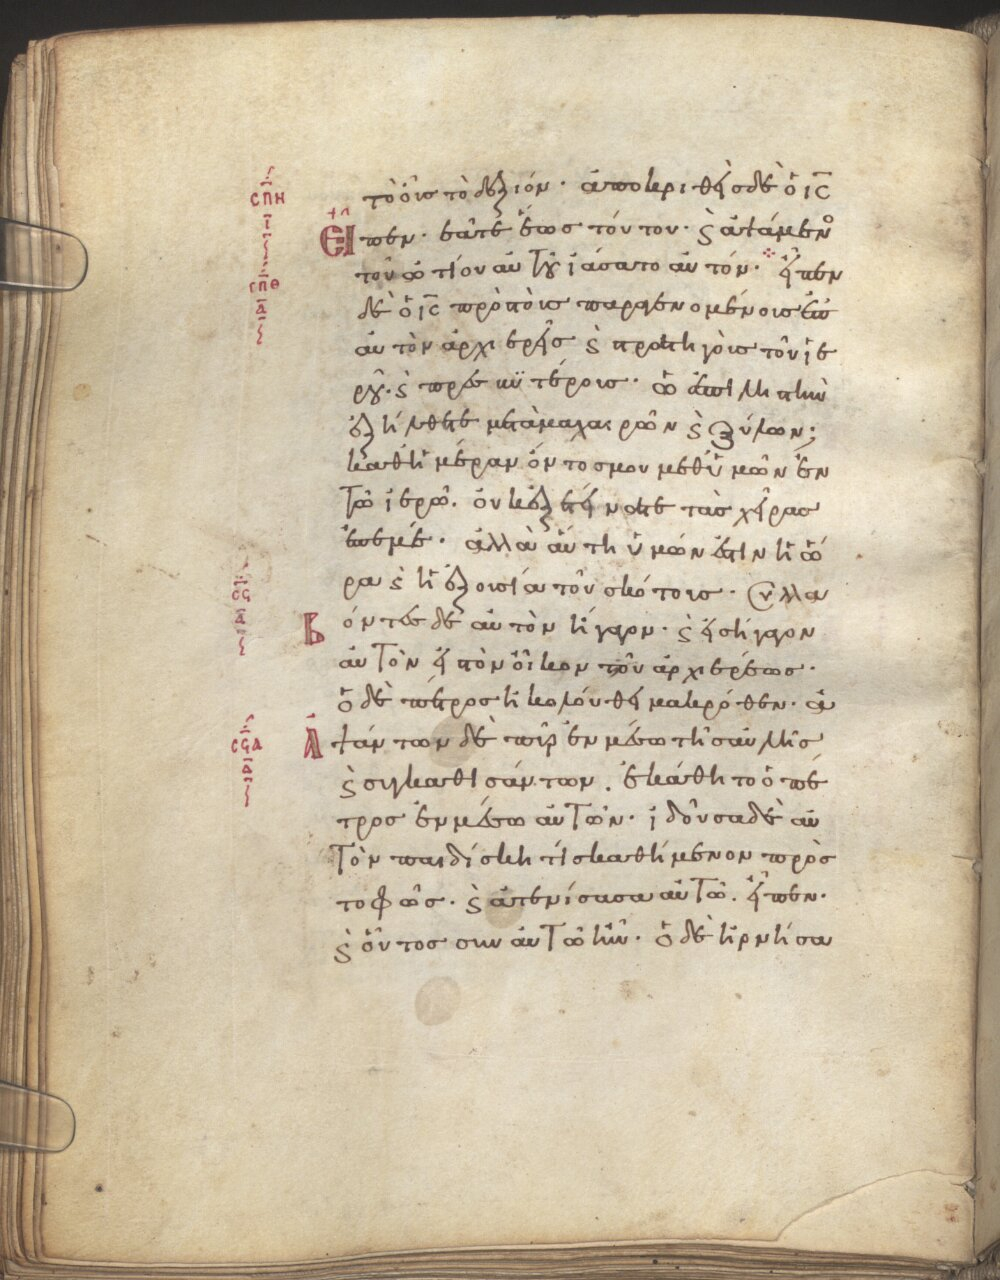 τὸ οὖς τὸ δεξιόν· ἀποκριθεὶς δὲ ὁ ις
εἶπεν· ἐᾶτε ἕως τούτου· ϗ ἁψάμενο
τοῦ ὠτίου αὐτοῦ ἰάσατο αὐτόν· εἶπεν
δὲ ὁ ις πρὸς τοὺς παραγενομένους ἐπ
αὐτὸν ἀρχιερεῖς ϗ στρατηγοὺς τοῦ ἱε
ροῦ· ϗ πρεσβυτέρους· ὡς ἐπὶ λῃστὴν
ἐξήλθετε μετὰ μαχαιρῶν ϗ ξύλων;
καθ ἡμέραν ὄντος μου μεθ ὑμῶν ἐν
τῶ ἱερῶ· οὐκ ἐξετείνατε τὰς χεῖρας
ἐπ ἐμέ· ἀλλὰ αὕτη ὑμῶν ἐστὶν ἡ ὥ
ρα ϗ ἡ ἐξουσία τοῦ σκότους· συλλα
βόντες δὲ αὐτὸν ἤγαγον· ϗ εἰσήγαγον
αὐτὸν εἰς τὸν οἶκον τοῦ ἀρχιερέως·
ὁ δὲ πέτρος ἠκολούθει μακρόθεν· ἁ
ψάντων δὲ πῦρ ἐν μέσω τῆς αὐλῆς
ϗ συγκαθισάντων· ἐκάθητο ὁ πέ
τρος ἐν μέσω αὐτῶν· ἰδοῦσα δὲ αὐ
τὸν παιδίσκη τὶς καθήμενον πρὸς
τὸ φῶς· ϗ ἀτενίσασα αὐτῶ· εἶπεν·
ϗ οὗτος σὺν αὐτῶ ἦν· ὁ δὲ ἠρνήσα